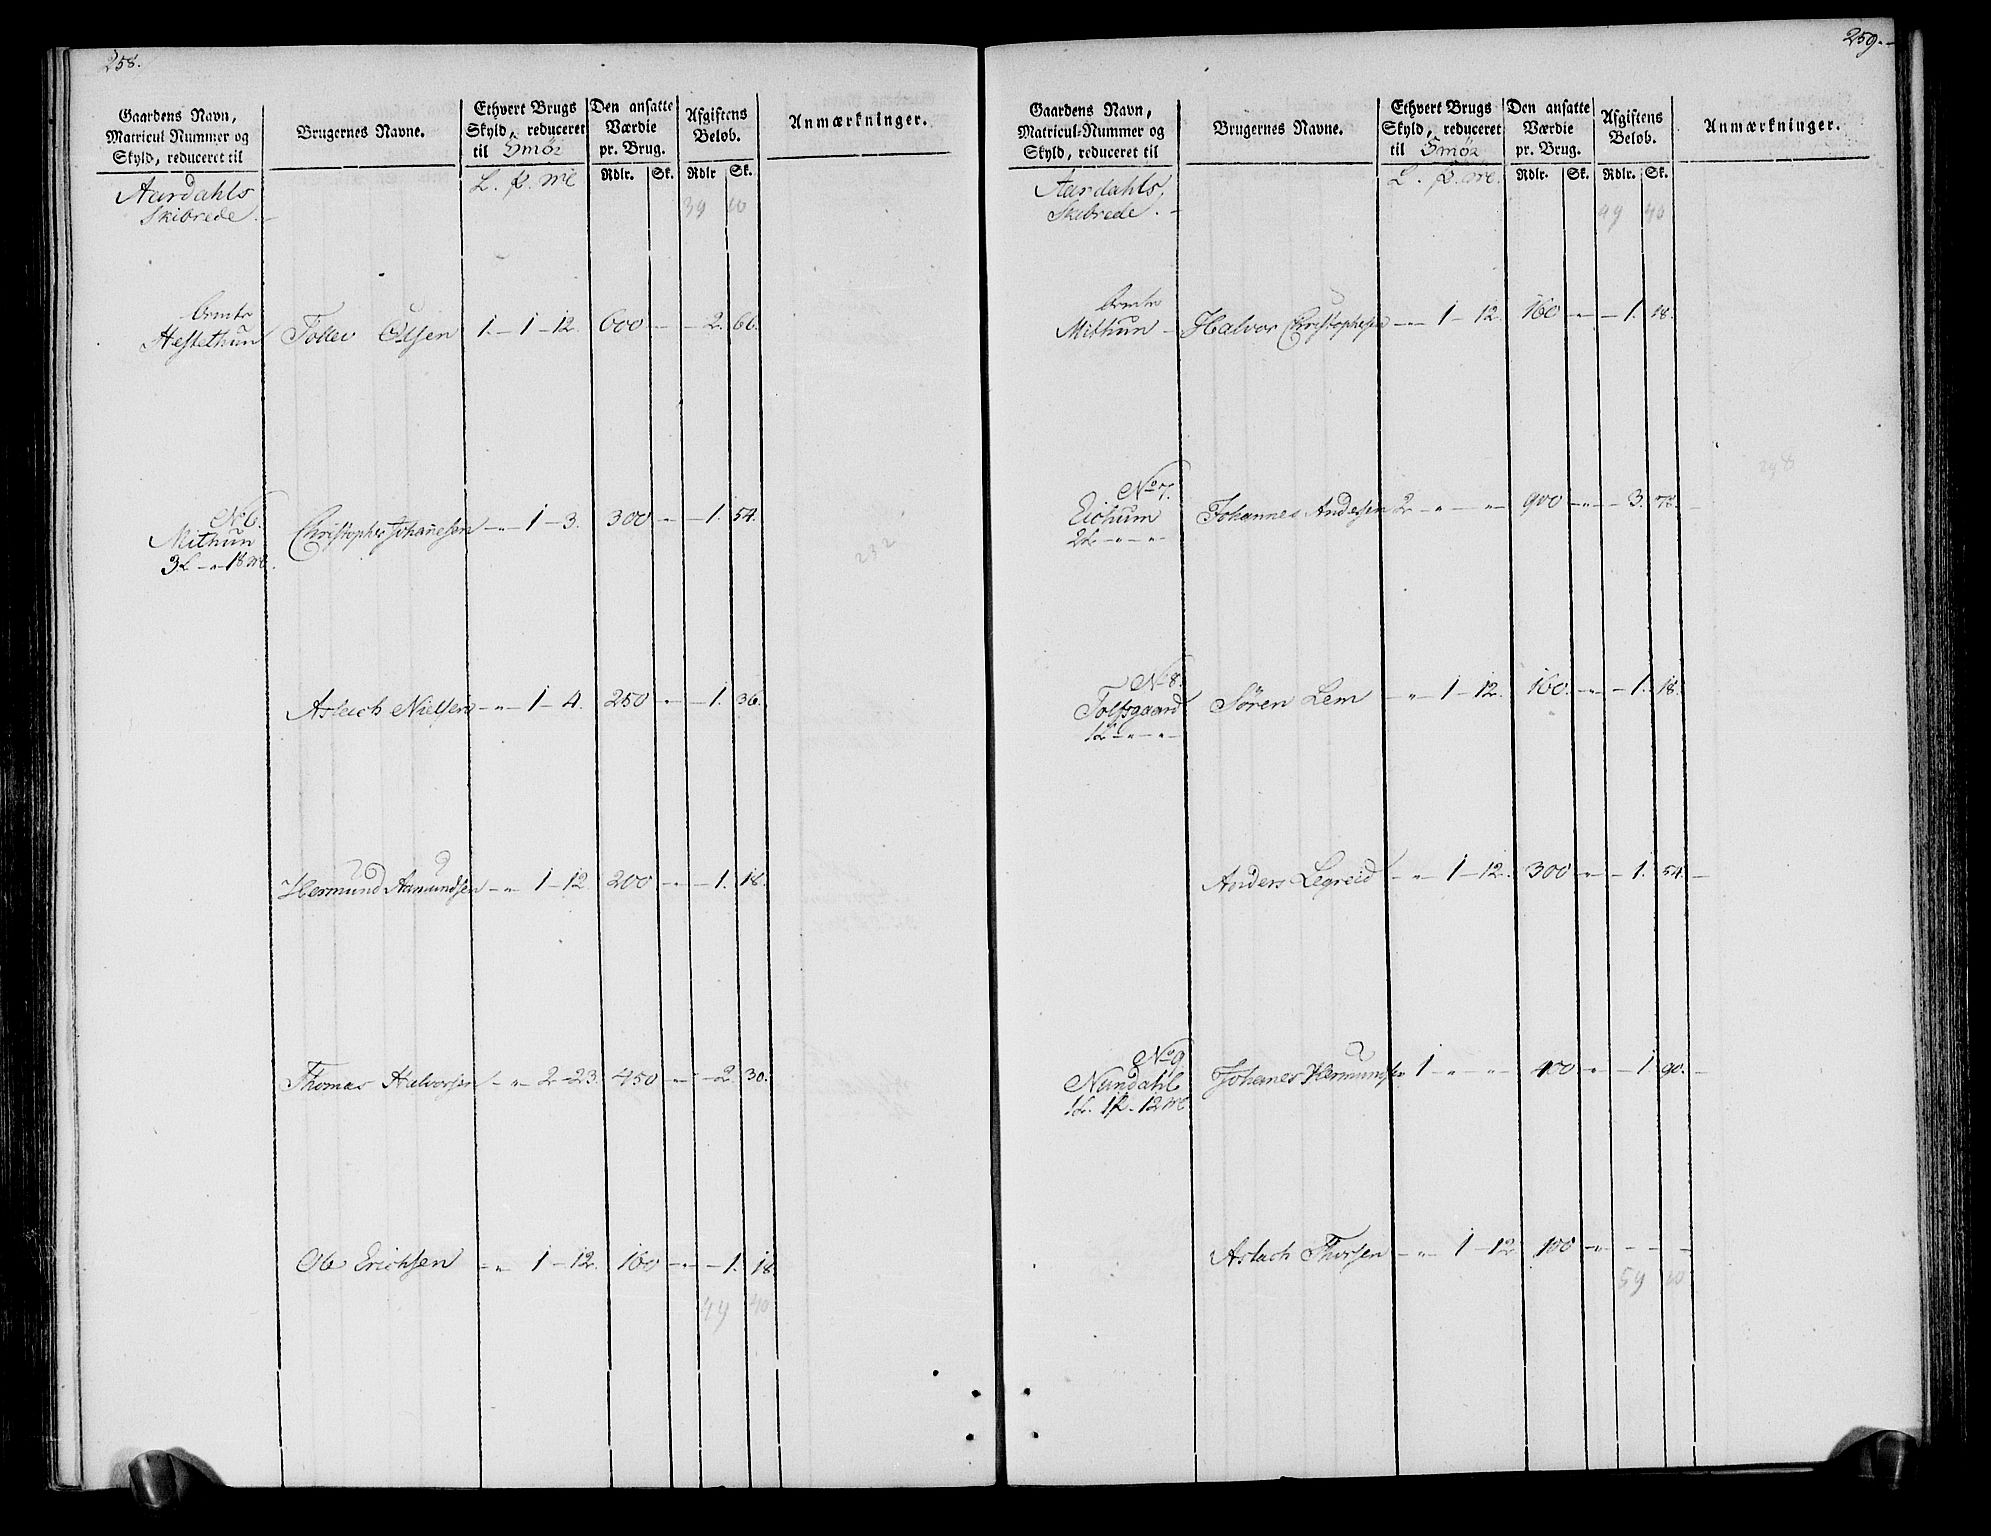 258.
Gaardens Navn, Matricul Nummer og Skyld, reduceret til
Brugernes Navne.
Ethvert Brugs Skyld, reduceret til Smör
Den ansatte Værdie pr. Brug.
Afgiftens Beløb.
Anmærkninger.
L. . me Rdlr. Sk. Rdlr Sk.
Aardahls
Skibrede.
39 60
Hestethun Olsen 1. – 1 – 12. 600 – – 2. 66.
No 6.
Mithun Christopher Johanesen – „ – 1 – 3. 300 – „ – 1. 54.
3L – „ – 18 me.
232
Aslach Nielsen – „ – 1 – 4. 250 – „ – 1. 36.
Hermund Aamundsen – „ – 1 – 12. 200 – „ – 1. 18.
Thomas Halvorsen – „ – 2 – 23. 450 – „ – 2. 30.
Ole Erichsen – „ – 1 – 12. 160 – „ – 1. 18.
49 40
259.
Gaardens Navn, Matricul-Nummer og Skyld, reduceret til
Brugernes Navne.
Ethvert Brugs Skyld, reduceret til Smör
Den ansatte Værdie pr. Brug.
Afgiftens Beløb.
Anmærkninger.
L. . me. Rdlr. Sk. Rdlr. Sk.
Aardahls
Skibrede.
49 40
Mithun – Halvor Christophersen – „ – 1 – 12. 160 – „ – 1. 18.
No 7.
Eichum Johannes Andersen 2 – „ – „ – 900 – „ – 3. 78.
2L – „ – „
No 8.
Tolfsgaard Sören Lem – „ – 1 – 12. 160. – „ – 1. 18.
1L – „ – „ –
Anders Legreid – „ – 1 – 12. 300 – „ – 1. 54.
No 9
Nundahl Johannes Hermundsen 1 – „ – „ – 400 „ – 1. 90.
1L. 1. 12 me
Aslach Thorsen – „ – 1 – 12 100 – „ – – – –
59 60